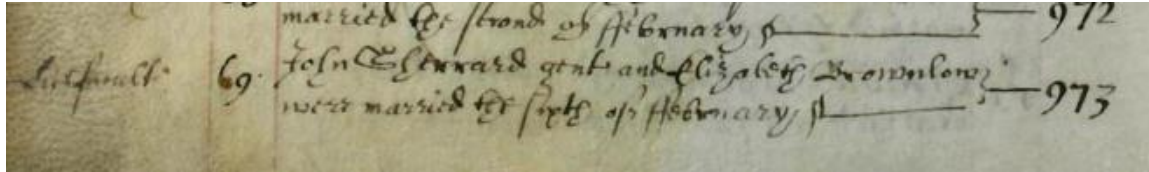 married the second of ffebruary 972
69. John Sherrard gent and Elizabeth Brownlow
were married the sixth of ffebruary 973